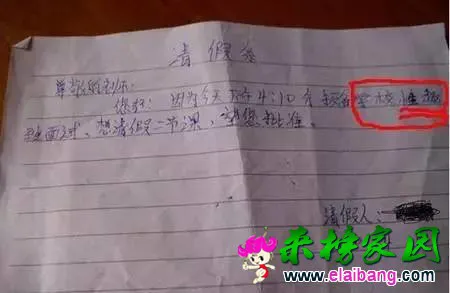 请假条
尊敬的老师:
您好:因为今天下午4:10分 校性趣
班面试、想请假二节课,望您批准。
请假人:
来榜家园
www.elaibang.com